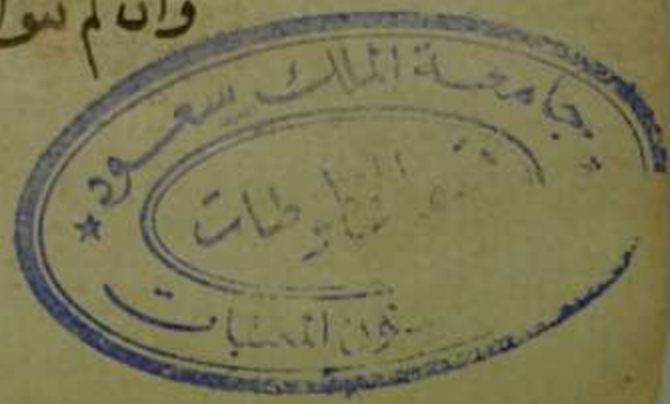 وان لم
جامعة الملك سعود
قسم المخطوطات
شؤون المكتبات